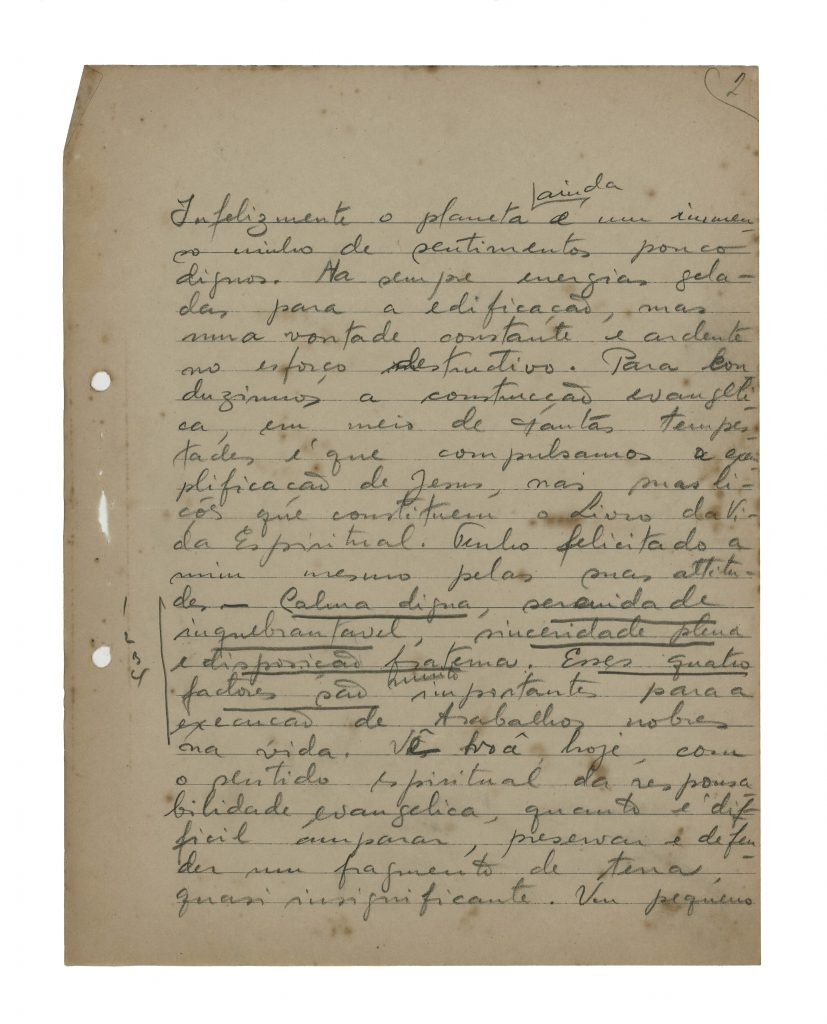 2
ainda
Infelizmente o planeta é um immen-
so ninho de sentimentos pouco
dignos. Ha sempre energias gela-
das para a edificação, mas
uma vontade constante e ardente
no esforço destructivo. Para con
duzirmos a construcção evangeli-
ca, em meio de tantas tempes-
tades é que compulsamos a exem
plificação de Jesus, nas suas li-
ções que constituem o Livro da Vi-
da Espiritual. Tenho felicitado a
mim mesmo pelas suas attitu-
des – Calma digna, serenidade
inquebrantavel, sinceridade plena
e disposição fraterna. Esses quatro
muito
factores são importantes para a
execucão de trabalhos nobres
na vida. Vê você, hoje, com
o sentido espiritual da responsa
bilidade evangelica, quanto é dif-
ficil amparar, preservar e defen-
der um fragmento de terra,
quasi insignificante. Um pequeno